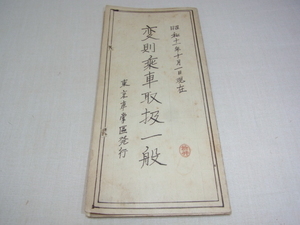 昭和十一年十月一日現在
変則乗車取扱一般
東京車掌区発行